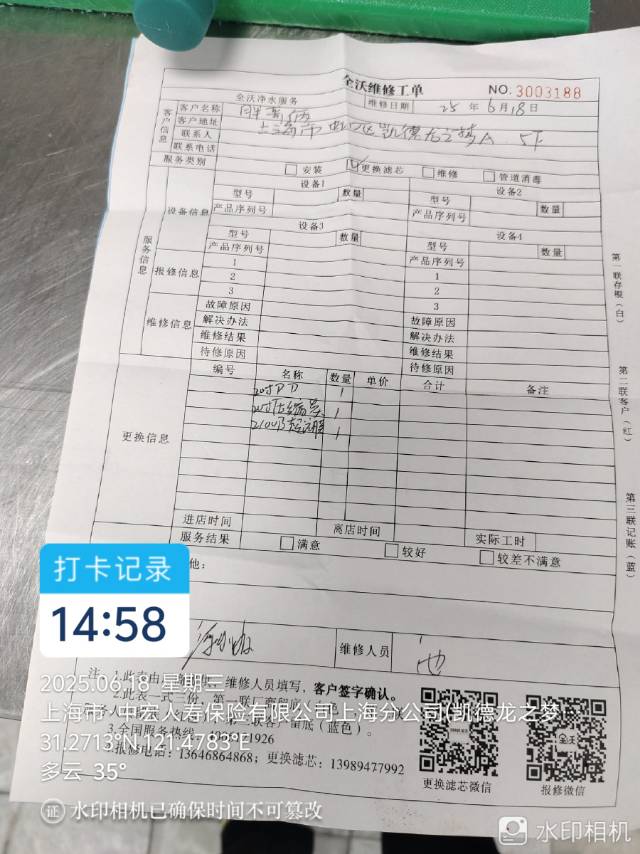 全沃维修工单
NO. 3003188
全沃净水服务
维修日期 25 年 6 月 18 日
客户信息
客户名称
客户地址 上海市虹口区凯德龙之梦A 5F
联系人
联系电话
服务类别 安装 更换滤芯 维修 管道消毒
服务信息
设备信息
设备1 设备2
型号 数量 型号 数量
产品序列号 产品序列号
设备3 设备4
型号 数量 型号 数量
产品序列号 产品序列号
报修信息
1 1
2 2
3 3
维修信息
故障原因 故障原因
解决办法 解决办法
维修结果 维修结果
待修原因 待修原因
更换信息
编号 名称 数量 单价 合计 备注
20寸PP 1
1
1
进店时间 离店时间 实际工时
服务结果 满意 较好 较差不满意
他:
维修人员
注:1.此表由 维修人员填写,客户签字确认。
2.此表一式 份,第一联
客留底(蓝色)。
3.全国服务热线 1926
报修电话:13646864868;更换滤芯:13989477992
更换滤芯微信
报修微信
全沃
第一联存根(白)
第二联客户(红)
第三联记账(蓝)
打卡记录
14:58
2025.06.18 星期三
上海市·中宏人寿保险有限公司上海分公司(凯德龙之梦
31.2713°N,121.4783°E
多云 35°
证 水印相机已确保时间不可篡改
水印相机